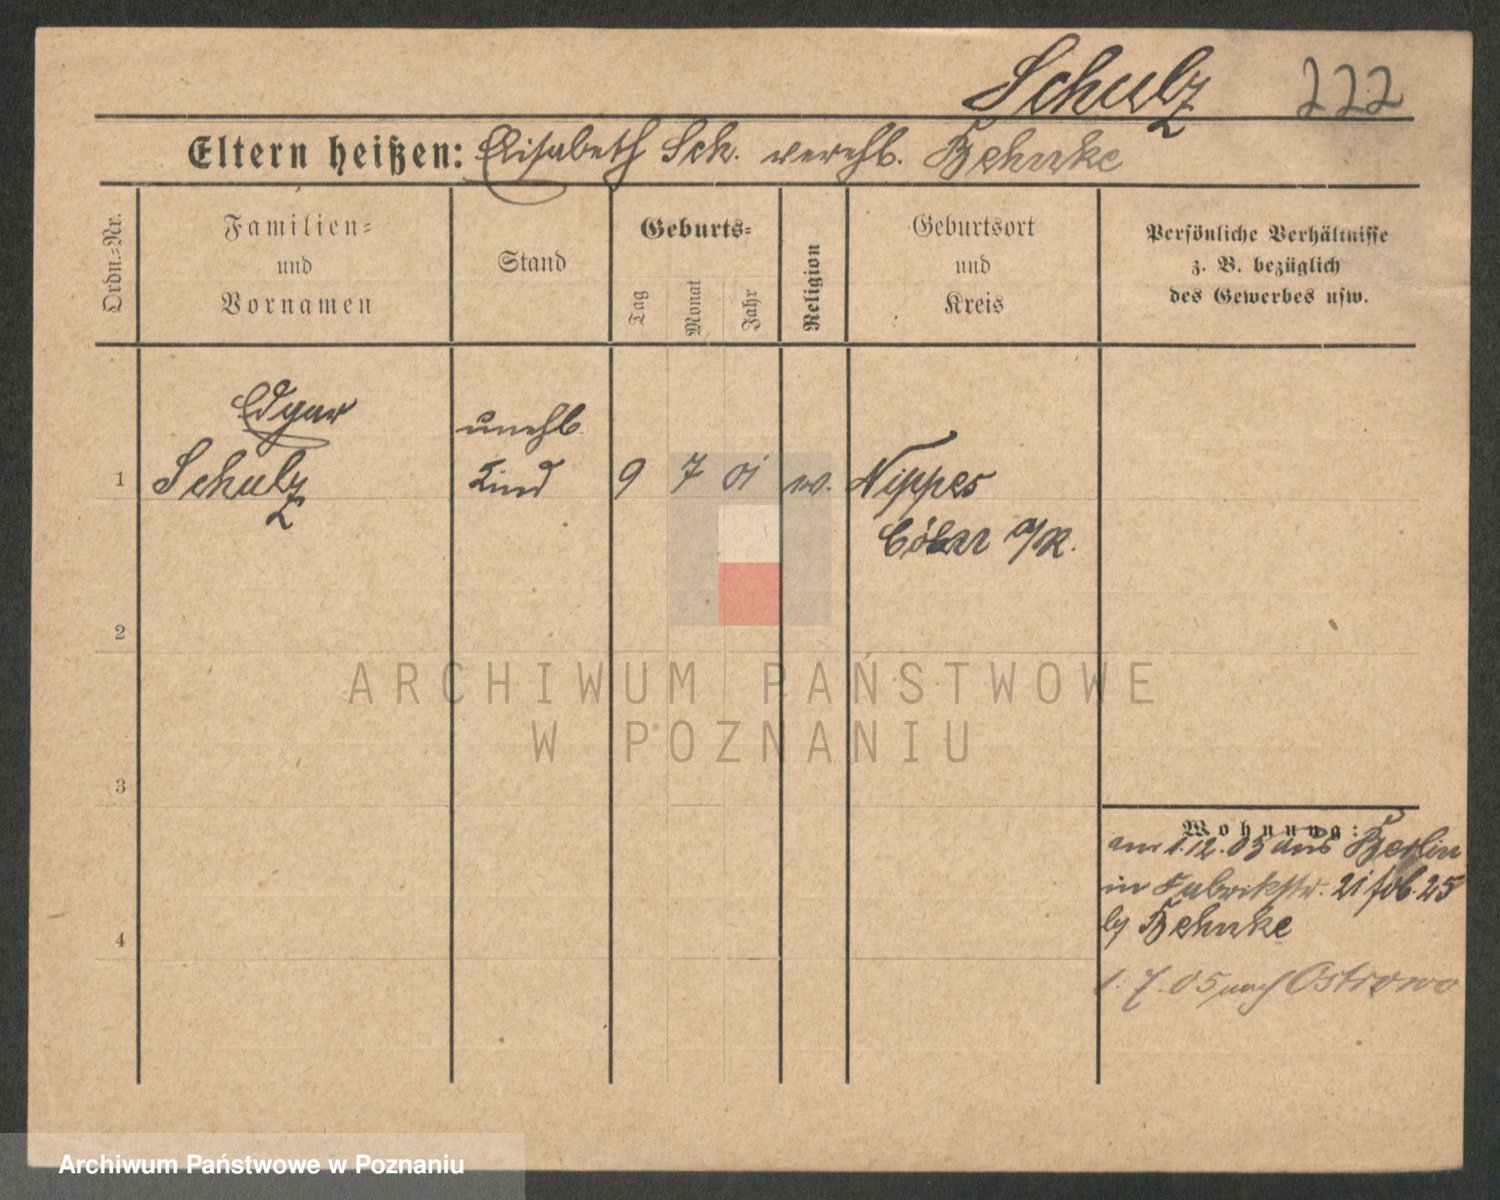 Schulz 222
Eltern heißen: Elisabeth Sch. verehl. Behnke
Ordn.-Nr.
Familien-
und
Vornamen
Stand
Geburts-
Tag
Monat
Jahr
Religion
Geburtsort
und
Kreis
Persönliche Verhältnisse
z. B. bezüglich
des Gewerbes usw.
Edgar
unehl.
1 Schulz Kind 9 7 01 ev. Nippes
Cöln a/R.
2
3
4
Wohnung:
am 1.12.03 aus Berlin
in Fabrikstr. 21 25
by Behnke
1.7.05 nach Ostrowo
ARCHIWUM PAŃSTWOWE
W POZNANIU
Archiwum Państwowe w Poznaniu